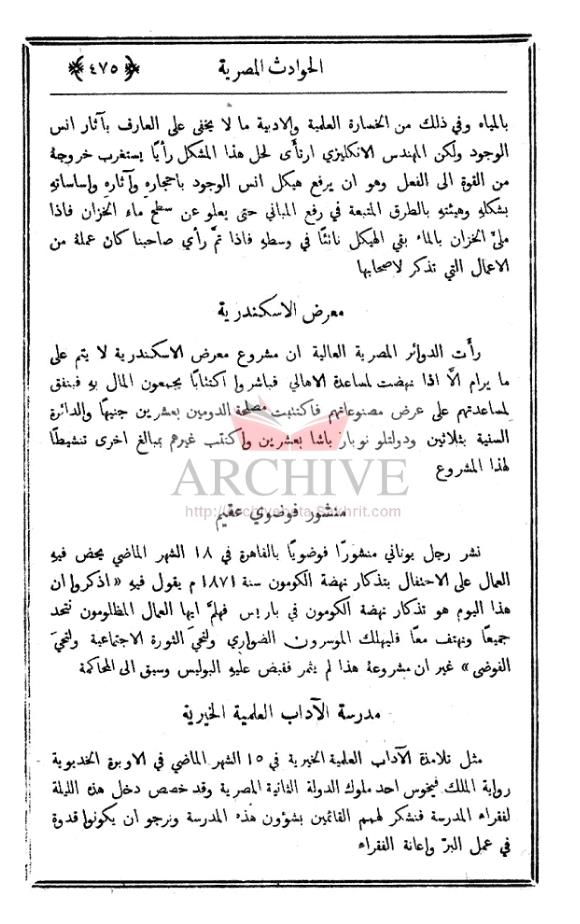 الحوادث المصرية
﴿ ٤٧٥ ﴾
بالمياه وفي ذلك من الخسارة العلمية والادبية ما لا يخفى على العارف بآثار انس
الوجود ولكن المهندس الانكليزي ارتأى لحل هذا المشكل رأيًا يستغرب خروجهُ
من القوة الى الفعل وهو ان يرفع هيكل انس الوجود باحجاره وآثاره واساساتهِ
بشكلهِ وهيئتهِ بالطرق المتبعة في رفع المباني حتى يعلو عن سطح ماء الخزان فاذا
ملئَ الخزان بالماء بقي الهيكل ناتئًا في وسطهِ فاذا تمَّ رأي صاحبنا كان عملهُ من
الاعمال التي تذكر لاصحابها
معرض الاسكندرية
رأت الدوائر المصرية العالية ان مشروع معرض الاسكندرية لا يتم على
ما يرام الَّا اذا نهضت لمساعدة الاهالي فباشروا اكتتابًا يجمعون المال بهِ فينفق
لمساعدتهم على عرض مصنوعاتهم فاكتتبت مصلحة الدومين بعشرين جنيهًا والدائرة
السنية بثلاثين ودولتلو نوبار باشا بعشرين واكتتب غيرهم بمبالغ اخرى تنشيطًا
لهذا المشروع
ARCHIVE
http://archivebeta.Sakhrit.com
منشور فوضوي عقيم
نشر رجل يوناني منشورًا فوضويًا بالقاهرة في ١٨ الشهر الماضي يحض فيهِ
العمال على الاحتفال بتذكار نهضة الكومون سنة ١٨٧١ م يقول فيهِ « اذكروا ان
هذا اليوم هو تذكار نهضة الكومون في باريس فهلمَّ ايها العمال المظلومون نتحد
جميعًا ونهتف معًا فليهلك الموسرون الضواري ولتحيَ الثورة الاجتماعية ولتحيَ
الفوضى » غير ان مشروعهُ هذا لم يثمر فقبض عليهِ البوليس وسيق الى المحاكمة
مدرسة الآداب العلمية الخيرية
مثل تلامذة الآداب العلمية الخيرية في ١٥ الشهر الماضي في الاوبرة الخديوية
رواية الملك فيخوس احد ملوك الدولة الثانية المصرية وقد خصص دخل هذه الليلة
لفقراء المدرسة فنشكر لهمم القائمين بشؤون هذه المدرسة ونرجو ان يكونوا قدوة
في عمل البرّ واعانة الفقراء